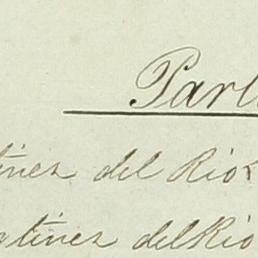 Parl
tinez del Rio
tinez del Rio